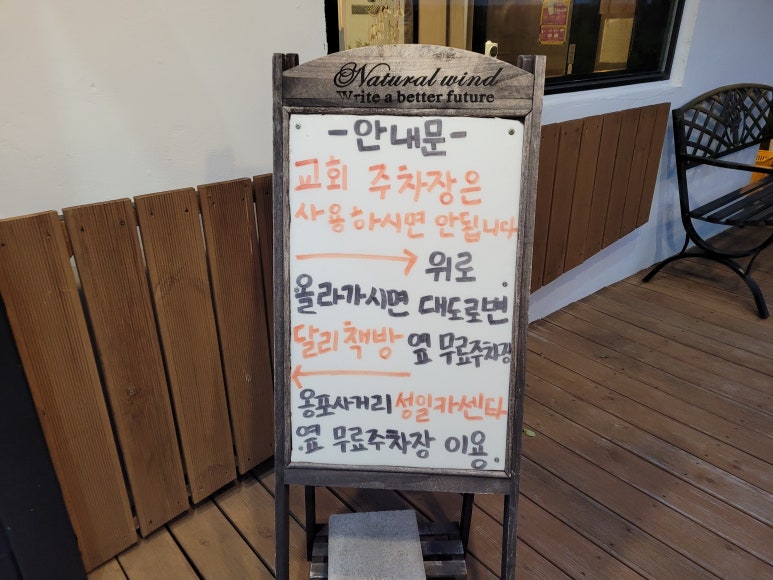 Natural wind
Write a better future
-안내문-
교회 주차장은
사용하시면 안됩니다
→ 위로
올라가시면 대도로변
달리책방 옆 무료주차장
←
옹포사거리 성일카센타
옆 무료주차장 이용.